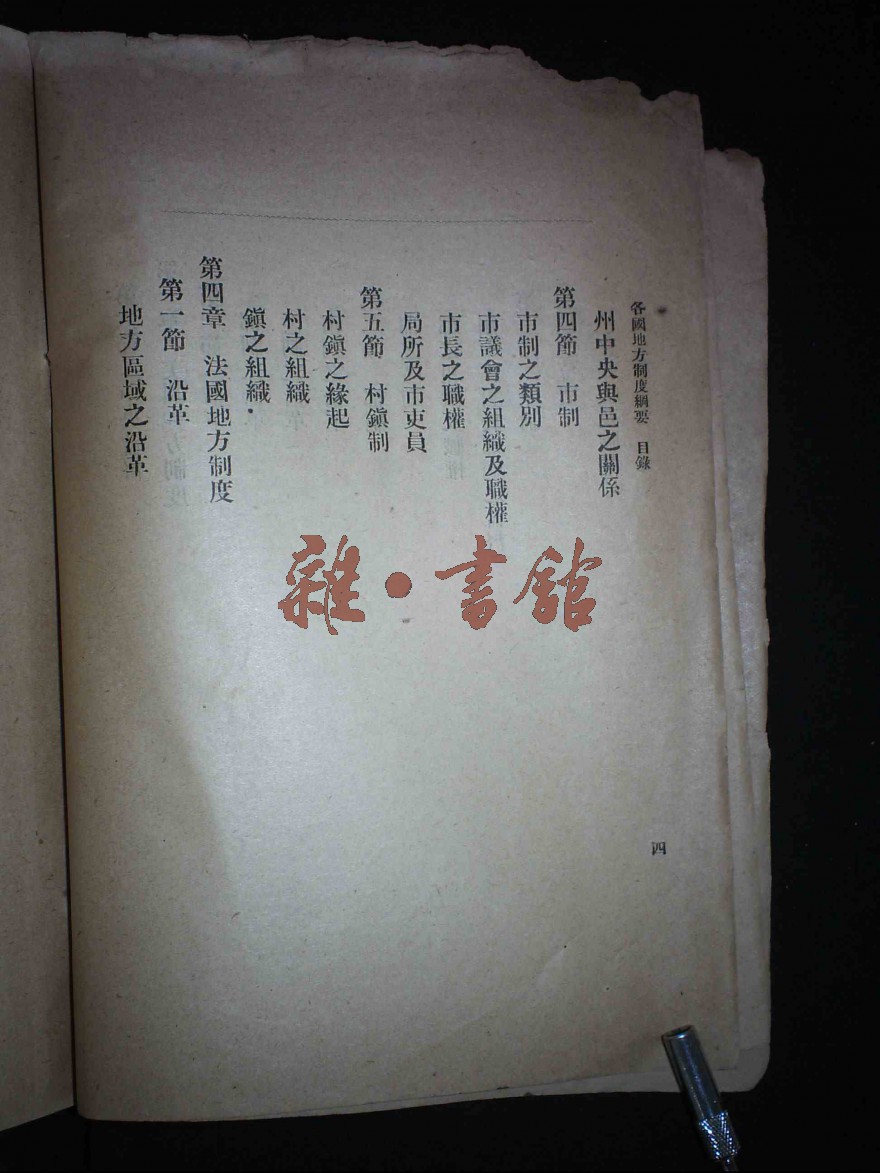 各國地方制度綱要　目錄
州中央與邑之關係
第四節　市制
市制之類別
市議會之組織及職權
市長之職權
局所及市吏員
第五節　村鎭制
村鎭之緣起
村之組織
鎭之組織
第四章　法國地方制度
第一節　沿革
地方區域之沿革
四
雜·書館